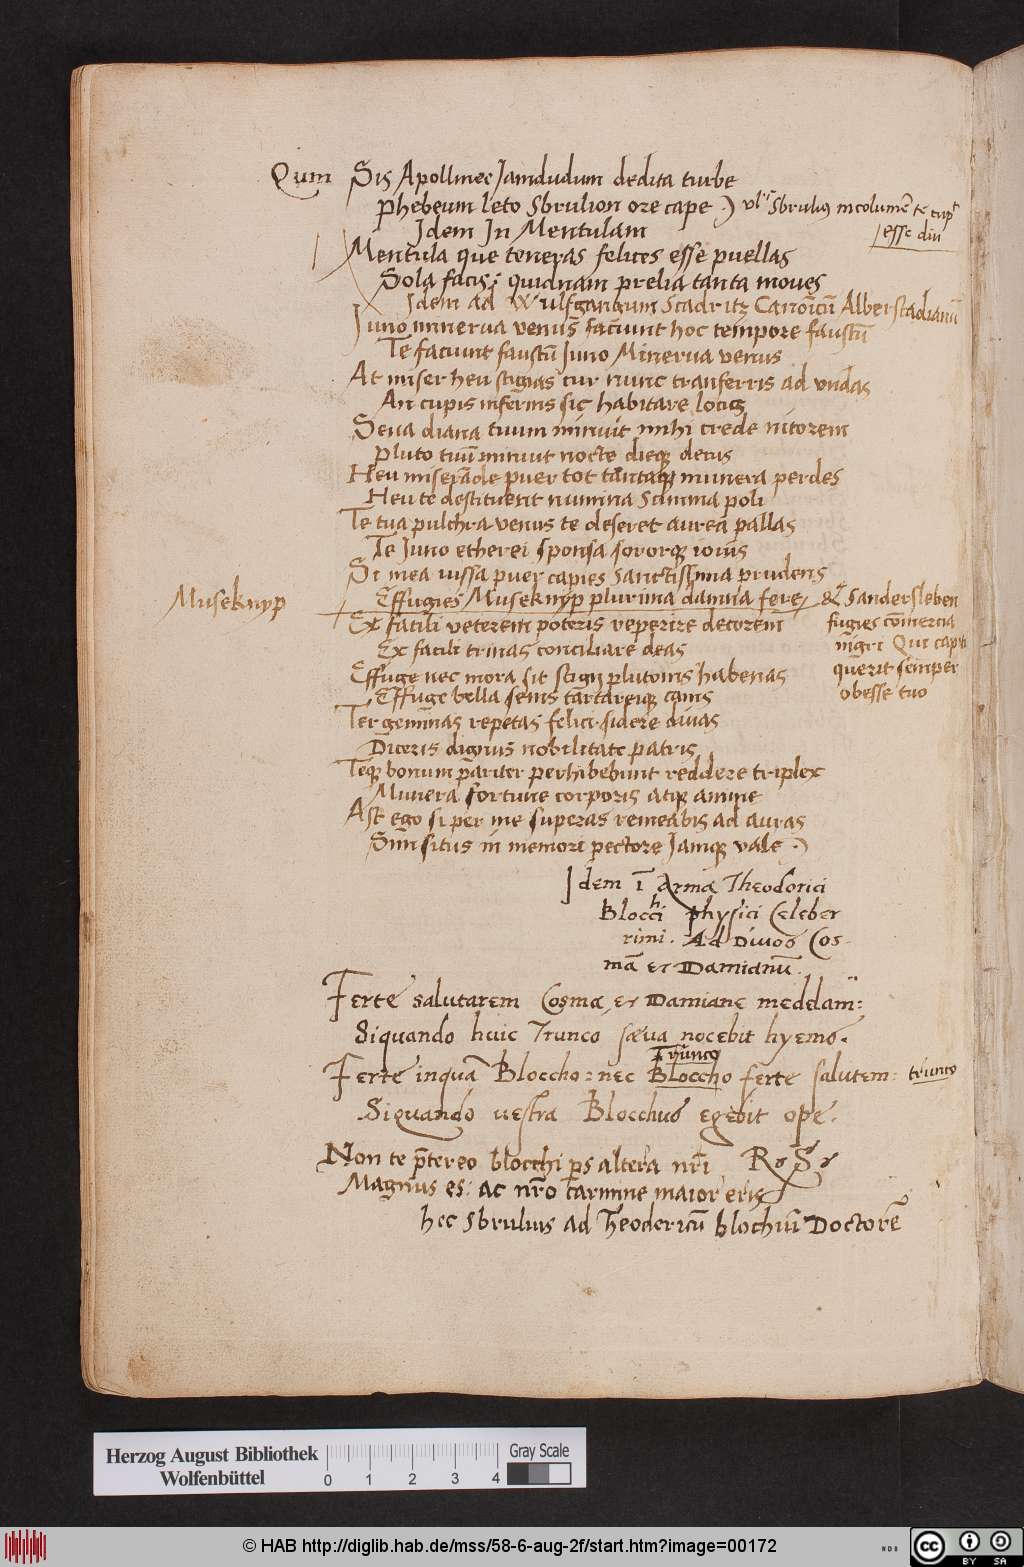 Qum Sis Apollinee Jamdudum dedita turbe
phebeum leto Sbrulion ore cape .) vl' Sbruliũ incolumē te cupit
esse diu
Idem In Mentulam
Mentula que teneras felices esse puellas
Sola facis: quidnam prelia tanta moves
Idem ad Wulfgangum Stadritz Canōicū Alberstadianū
Juno minerva venus faciunt hoc tempore faustū
Te faciunt faustū Juno Minerva venus
At miser heu stigias cur nunc tranferris ad vndas
An cupis infernis sic habitare locis
Seua diana tuum minuit mihi crede nitorem
pluto tuū minuit nocte dieqz decus
Heu miserāde puer tot tantaqz munera perdes
Heu te destituent numina summa poli
Te tua pulchra venus te deseret aurea pallas
Te Juno etherei sponsa sororqz iovis
Si mea iussa puer capies sanctissima prudens
Museknyp
Effugies Museknyp plurima damna fere
& Sandersleben
Ex facili veterem poteris reperire decorem
fugies cōmercia
nigri Qui capiti
Ex facili trinas conciliare deas
Effuge nec mora sit stigij plutonis habenas
querit semper
obesse tuo
Effuge bella senis tartareiqz canis
Ter geminas repetas felici sidere divas
Diceris dignus nobilitate patris
Teqz bonum pariter perhibebunt reddere triplex
Munera fortune corporis atqz anime
Ast ego si per me superas remeabis ad auras
Sim situs in memori pectore Jamqz vale .)
Idem ī Arma Theodorici
Blocchi physici Celeber
rimi. Ad Divos Cos-
mā et Damianū.
Ferte salutarem Cosma, et Damiane medelam:
Siquando huic Trunco sæva nocebit hyems.
Trunco
Ferte inquā Bloccho: nec Bloccho ferte salutem: trunco
Siquando vestra Blocchus egebit ope.
Non te p̄tereo blocchi ps altera nr̄i R. S.
Magnus es: ac nr̄o carmine maior eris
hec Sbrulius ad Theodericū blochiū Doctorē
Herzog August Bibliothek
Wolfenbüttel
0 1 2 3 4
Gray Scale
© HAB http://diglib.hab.de/mss/58-6-aug-2f/start.htm?image=00172
cc BY SA